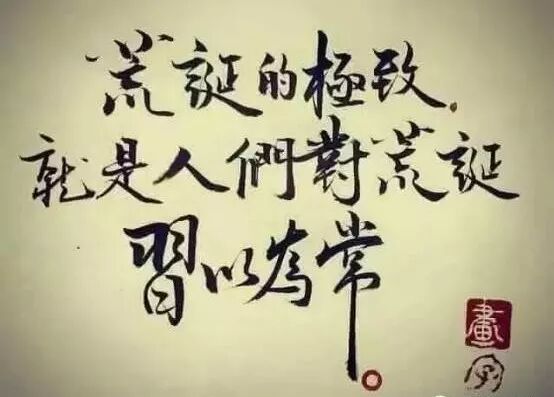 荒誕的極致,
就是人們對荒誕
習以為常。
畫